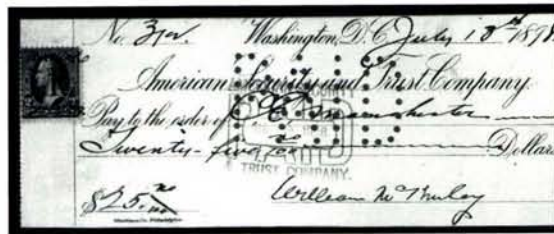 No. 312. Washington, D.C. July 18th 1898
American Security and Trust Company.
Pay to the order of Manchester
Twenty-five no Dollars
TRUST COMPANY.
$25.no William McKinley